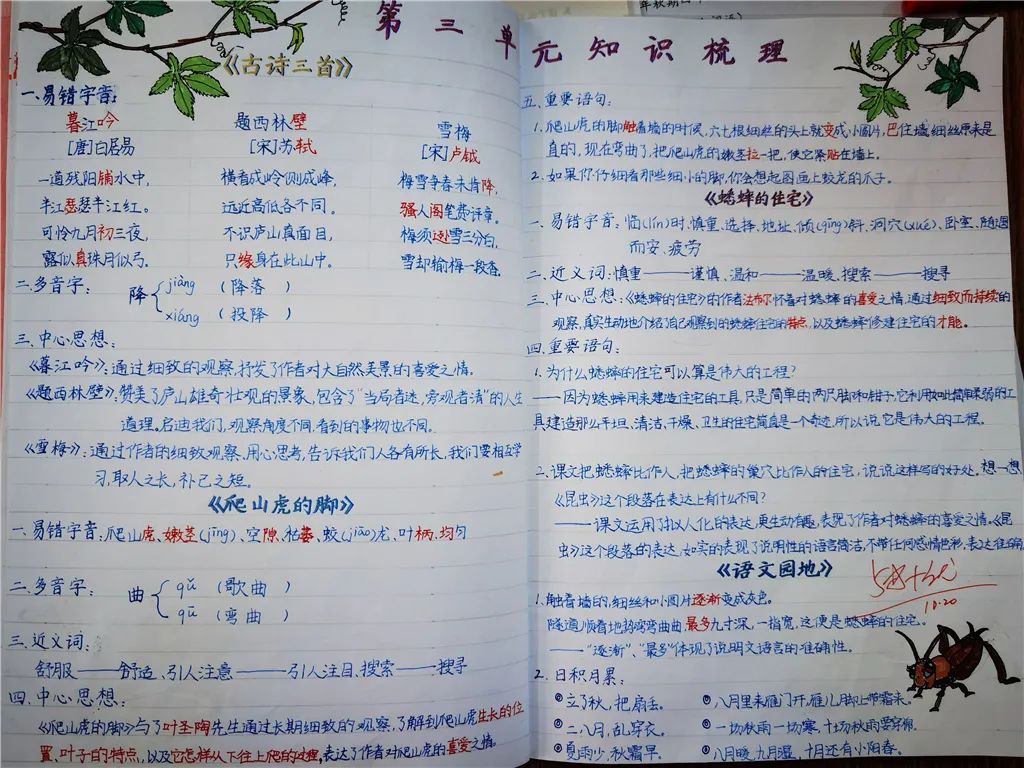 第三单元知识梳理
《古诗三首》
一.易错字音:
暮江吟
[唐]白居易
一道残阳铺水中,
半江瑟瑟半江红。
可怜九月初三夜,
露似真珠月似弓。
题西林壁
[宋]苏轼
横看成岭侧成峰,
远近高低各不同。
不识庐山真面目,
只缘身在此山中。
雪梅
[宋]卢钺
梅雪争春未肯降,
骚人阁笔费评章。
梅须逊雪三分白,
雪却输梅一段香。
二.多音字:
降
jiàng (降落)
xiáng (投降)
三.中心思想:
《暮江吟》:通过细致的观察,抒发了作者对大自然美景的喜爱之情.
《题西林壁》:赞美了庐山雄奇壮观的景象,包含了“当局者迷,旁观者清”的人生
道理,启迪我们,观察角度不同看到的事物也不同.
《雪梅》:通过作者的细致观察,用心思考,告诉我们人各有所长,我们要相互学
习,取人之长,补己之短.
《爬山虎的脚》
一.易错字音:爬山虎、嫩茎(jīng)、空隙、枯萎、蛟(jiāo)龙、叶柄、均匀
二.多音字:
曲
qǔ (歌曲)
qū (弯曲)
三.近义词:
舒服——舒适、引人注意——引人注目、搜索——搜寻
四.中心思想:
《爬山虎的脚》与了叶圣陶先生通过长期细致的观察,了解到爬山虎生长的位
置、叶子的特点,以及它怎样从下往上爬的过程,表达了作者对爬山虎的喜爱之情.
五.重要语句:
1.爬山虎的脚触着墙的时候,六七根细丝的头上就变成小圆片,巴住墙.细丝原来是
直的,现在弯曲了,把爬山虎的嫩茎拉一把,使它紧贴在墙上.
2.如果你仔细看那些细小的脚,你会想起图画上蛟龙的爪子.
《蟋蟀的住宅》
一.易错字音:临(lín)时、慎重、选择、地址、倾(qīng)斜、洞穴(xué)、卧室、随遇
而安、疲劳
二.近义词:慎重——谨慎、温和——温暖、搜索——搜寻
三.中心思想:《蟋蟀的住宅》的作者法布尔怀着对蟋蟀的喜爱之情,通过细致而持续的
观察,真实生动地介绍了自己观察到的蟋蟀住宅的特点,以及蟋蟀修建住宅的才能。
四.重要语句:
1.为什么蟋蟀的住宅可以算是伟大的工程?
——因为蟋蟀用来建造住宅的工具,只是简单的两只腿和钳子,它利用如此简单柔弱的工
具建造那么平坦、清洁、干燥、卫生的住宅简直是一个奇迹,所以说它是伟大的工程。
2.课文把蟋蟀比作人,把蟋蟀的巢穴比作人的住宅,说说这样写的好处.想一想
《昆虫》这个段落在表达上有什么不同?
——课文运用了拟人化的表达,更生动有趣,表现了作者对蟋蟀的喜爱之情。《昆
虫》这个段落的表达,如实的表现了说明性的语言简洁,不带任何感情色彩,表达准确
《语文园地》
1.触着墙的细丝和小圆片逐渐变成灰色。
隧道顺着地势弯弯曲曲,最多九寸深,一指宽,这便是蟋蟀的住宅。
——“逐渐”、“最多”体现了说明文语言的准确性。
10.20
2.日积月累:
①立了秋,把扇丢。
②二八月,乱穿衣。
③夏雨少,秋霜早。
八月里来雁门开,雁儿脚上带霜来。
一场秋雨一场寒,十场秋雨要穿棉。
八月暖,九月温,十月还有小阳春。